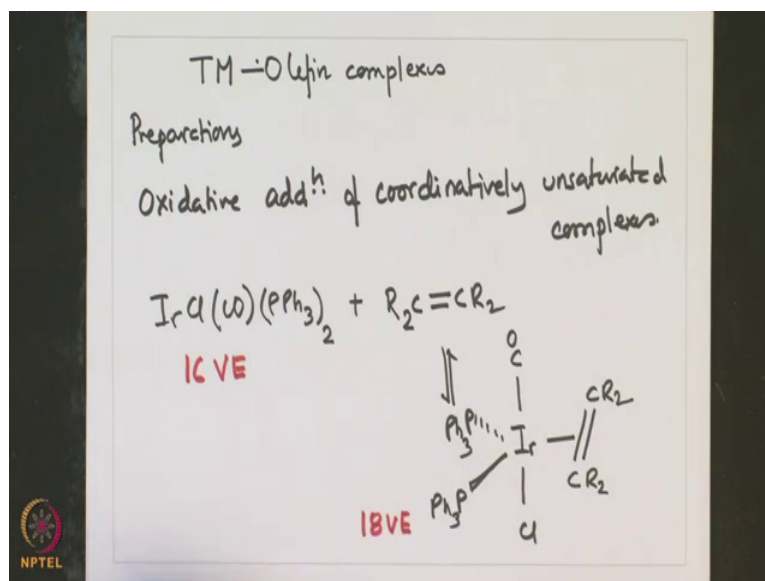 TM – Olefin complexes
Preparctions
Oxidative addⁿ of coordinatively unsaturated
complexes.
IrCl(CO)(PPh₃)₂ + R₂C=CR₂
16 VE
O
C
CR₂
Ph₃P Ir
CR₂
Ph₃P
18VE
Cl
NPTEL